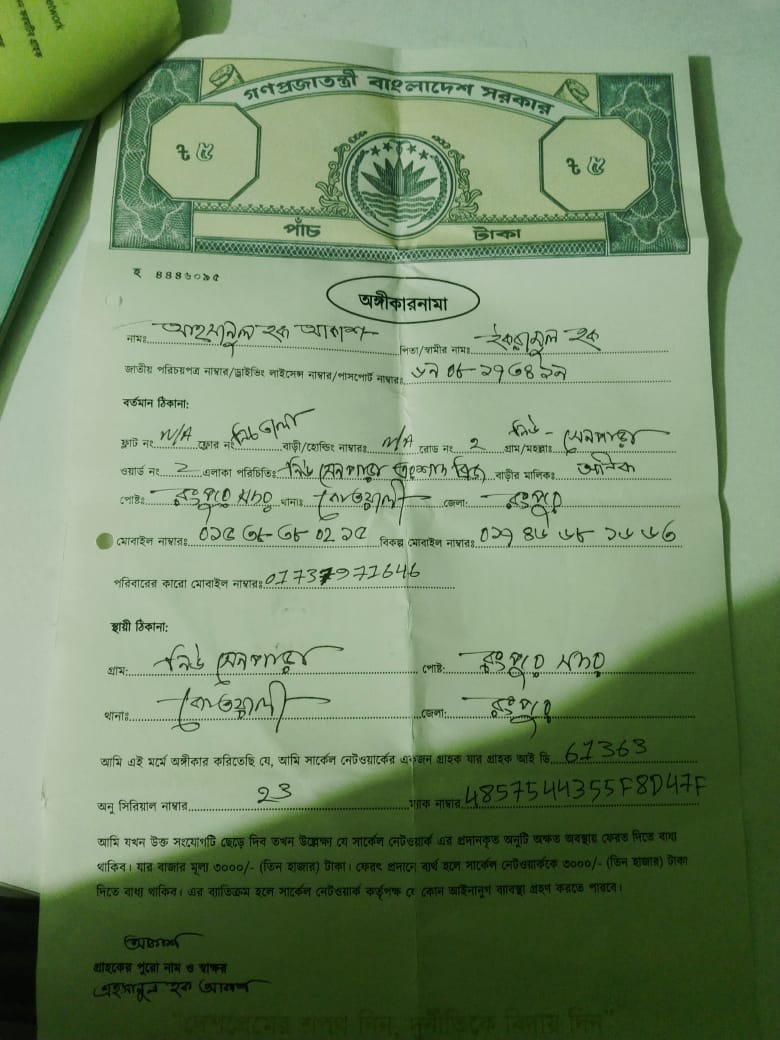 network
গণপ্রজাতন্ত্রী বাংলাদেশ সরকার
৳ ৫ ৳ ৫
পাঁচ টাকা
হ ৪৪৪৬০৯৫
অঙ্গীকারনামা
নামঃ আহসানুল হক আকাশ পিতা/স্বামীর নামঃ ইকরামুল হক
জাতীয় পরিচয়পত্র নাম্বার/ড্রাইভিং লাইসেন্স নাম্বার/পাসপোর্ট নাম্বারঃ
বর্তমান ঠিকানা:
ফ্লাট নং N/A ফ্লোর নং নিচতলা বাড়ী/হোল্ডিং নাম্বারঃ N/A রোড নং ২ গ্রাম/মহল্লাঃ নিউ-সেনপাড়া
ওয়ার্ড নং 2 এলাকা পরিচিতিঃ নিউ সেনপাড়া ব্রিজ বাড়ীর মালিকঃ
পোষ্টঃ রংপুর সদর থানাঃ কোতয়ালী জেলা: রংপুর
মোবাইল নাম্বারঃ বিকল্প মোবাইল নাম্বারঃ
পরিবারের কারো মোবাইল নাম্বারঃ 01737971646
স্থায়ী ঠিকানা:
গ্রাম: নিউ সেনপাড়া পোষ্ট: রংপুর সদর
থানাঃ কোতয়ালী জেলা: রংপুর
আমি এই মর্মে অঙ্গীকার করিতেছি যে, আমি সার্কেল নেটওয়ার্কের একজন গ্রাহক যার গ্রাহক আই ডি 61363
অনু সিরিয়াল নাম্বার 23 ম্যাক নাম্বার 4857544355F8D47F
আমি যখন উক্ত সংযোগটি ছেড়ে দিব তখন উল্লেক্ষ্য যে সার্কেল নেটওয়ার্ক এর প্রদানকৃত অনুটি অক্ষত অবস্থায় ফেরত দিতে বাধ্য
থাকিব। যার বাজার মূল্য ৩০০০/- (তিন হাজার) টাকা। ফেরৎ প্রদানে ব্যর্থ হলে সার্কেল নেটওয়ার্ককে ৩০০০/- (তিন হাজার) টাকা
দিতে বাধ্য থাকিব। এর ব্যাতিক্রম হলে সার্কেল নেটওয়ার্ক কর্তৃপক্ষ যে কোন আইনানুগ ব্যাবস্থা গ্রহণ করতে পারবে।
আকাশ
গ্রাহকের পুরো নাম ও স্বাক্ষর
এহসানুল হক আকাশ
"দেশপ্রেমের শপথ নিন, দুর্নীতিকে বিদায় দিন"